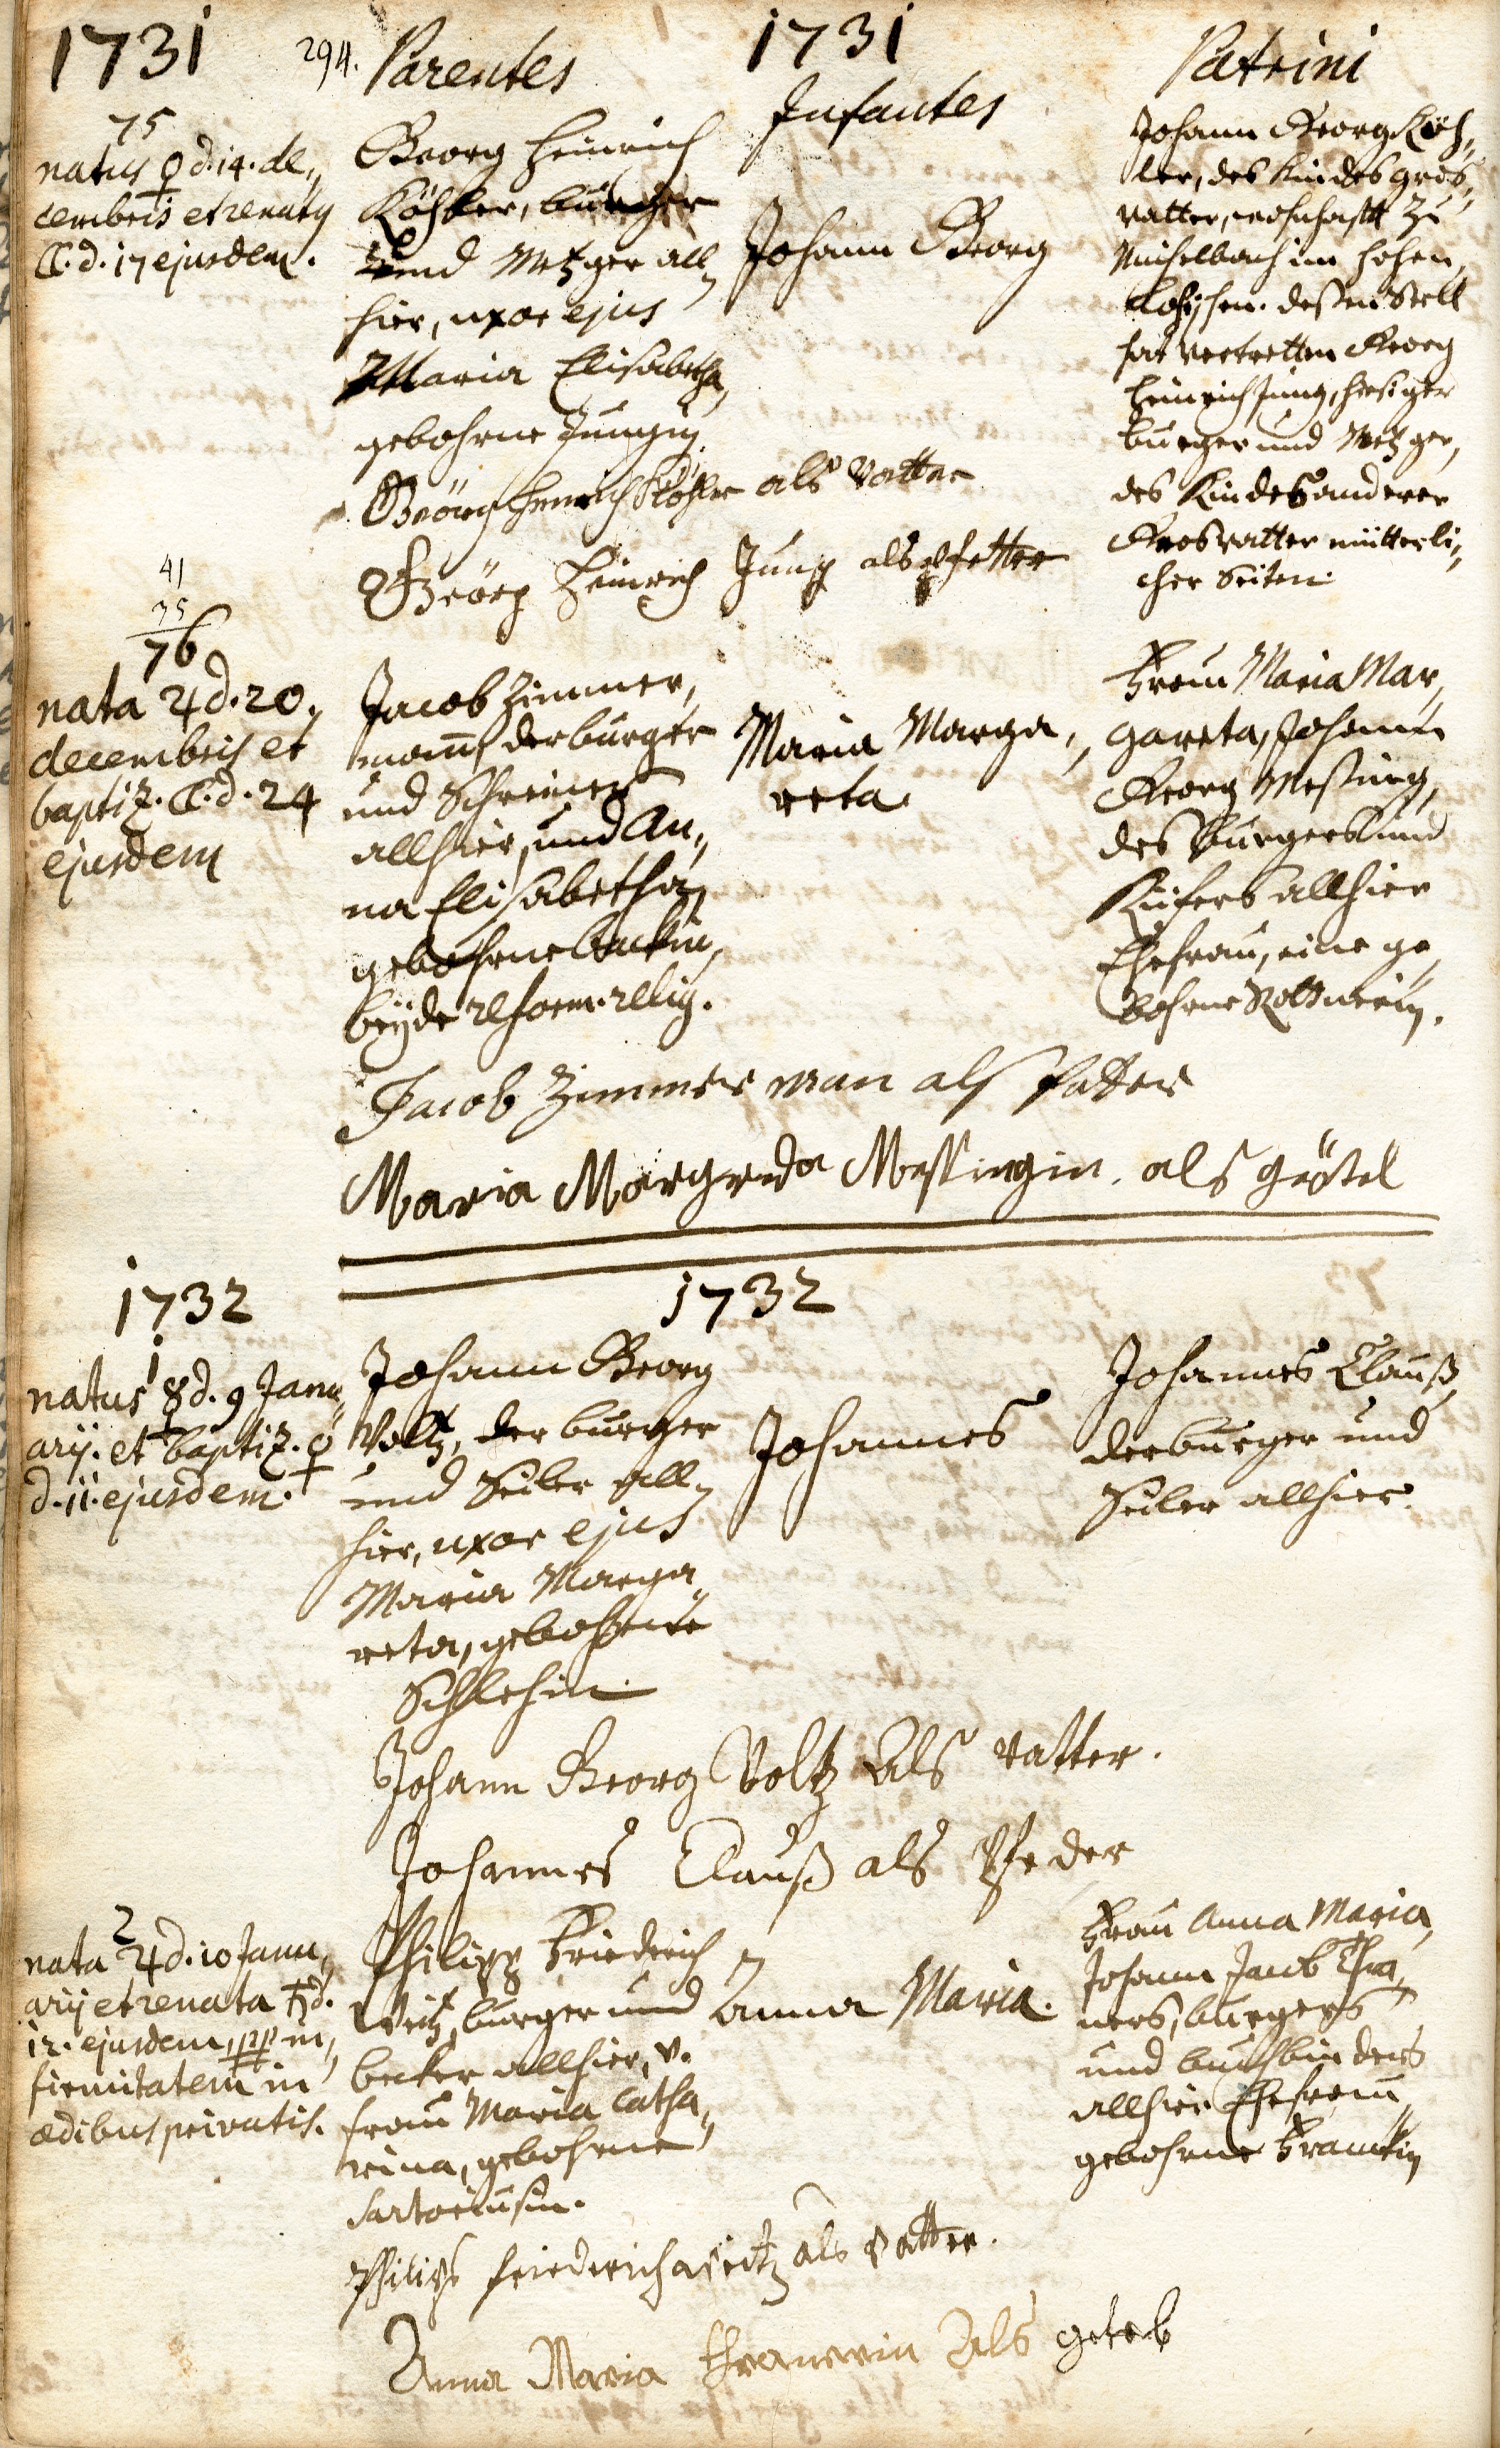 1731
294.
Parentes
1731
Infantes
Patrini
75
natus ♀ d. 14. de„
cembris et renatus
☾. d. 17 ejusdem.
Georg Heinrich
Köhler, burger
und Metzger all„
hier, uxor ejus
Maria Elisabetha,
gebohrne Jungin.
Johann Georg
Johann Georg Köh„
ler, des Kindes Gros„
vatter, wohnhafft zu
Michelbach im Hohen„
lohischen. dessen Stell
hat vertretten Georg
Heinrich Jung, hiesiger
burger und Metzger,
des Kindes anderer
Grosvatter mütterli„
cher Seiten.
Geörg Henrich Köhler als Vatter
Geörg Heinrich Jung als pfetter
41
35
76
nata ♃ d. 20.
decembris et
baptiz. ☾. d. 24
ejusdem
Jacob Zimmer„
mann, der burger
und Schreiner
allhier, und An„
na Elisabetha,
gebohrne
beyde reform. relig.
Maria Marga„
reta
Frau Maria Mar„
gareta, Johann
Georg Messing,
des Burgers und
Kiefers allhier
Ehefrau, eine ge„
bohrne
Jacob Zimmer man als Vatter
Maria Margreda Messingin. als göttel
1732
1732
1
natus ☿ d. 9 Janu„
arij. et baptiz. ♀
d. 11. ejusdem.
Johann Georg
Voltz, der burger
und Seiler all„
hier, uxor ejus
Maria Marga„
reta, gebohrne
Schlehin.
Johannes
Johannes Clauß,
der burger und
Seiler allhier.
Johann Georg Voltz Als vatter.
Johannes Clauß als Pfeder
2
nata ♃ d. 10 Janu„
arij et renata ♄ d.
12. ejusdem, pp in„
firmitatem in
ædibus privatis.
Philipp Friedrich
Veitz, burger und
becker allhier, v.
frau Maria Catha„
rina, gebohrne
Sartoriusin.
Anna Maria.
Frau Anna Maria,
Johann Jacob
burgers
und buchbinders
allhier Ehefrau
gebohrne Franckin
Philips friedrich als vatter.
Anna Maria Als